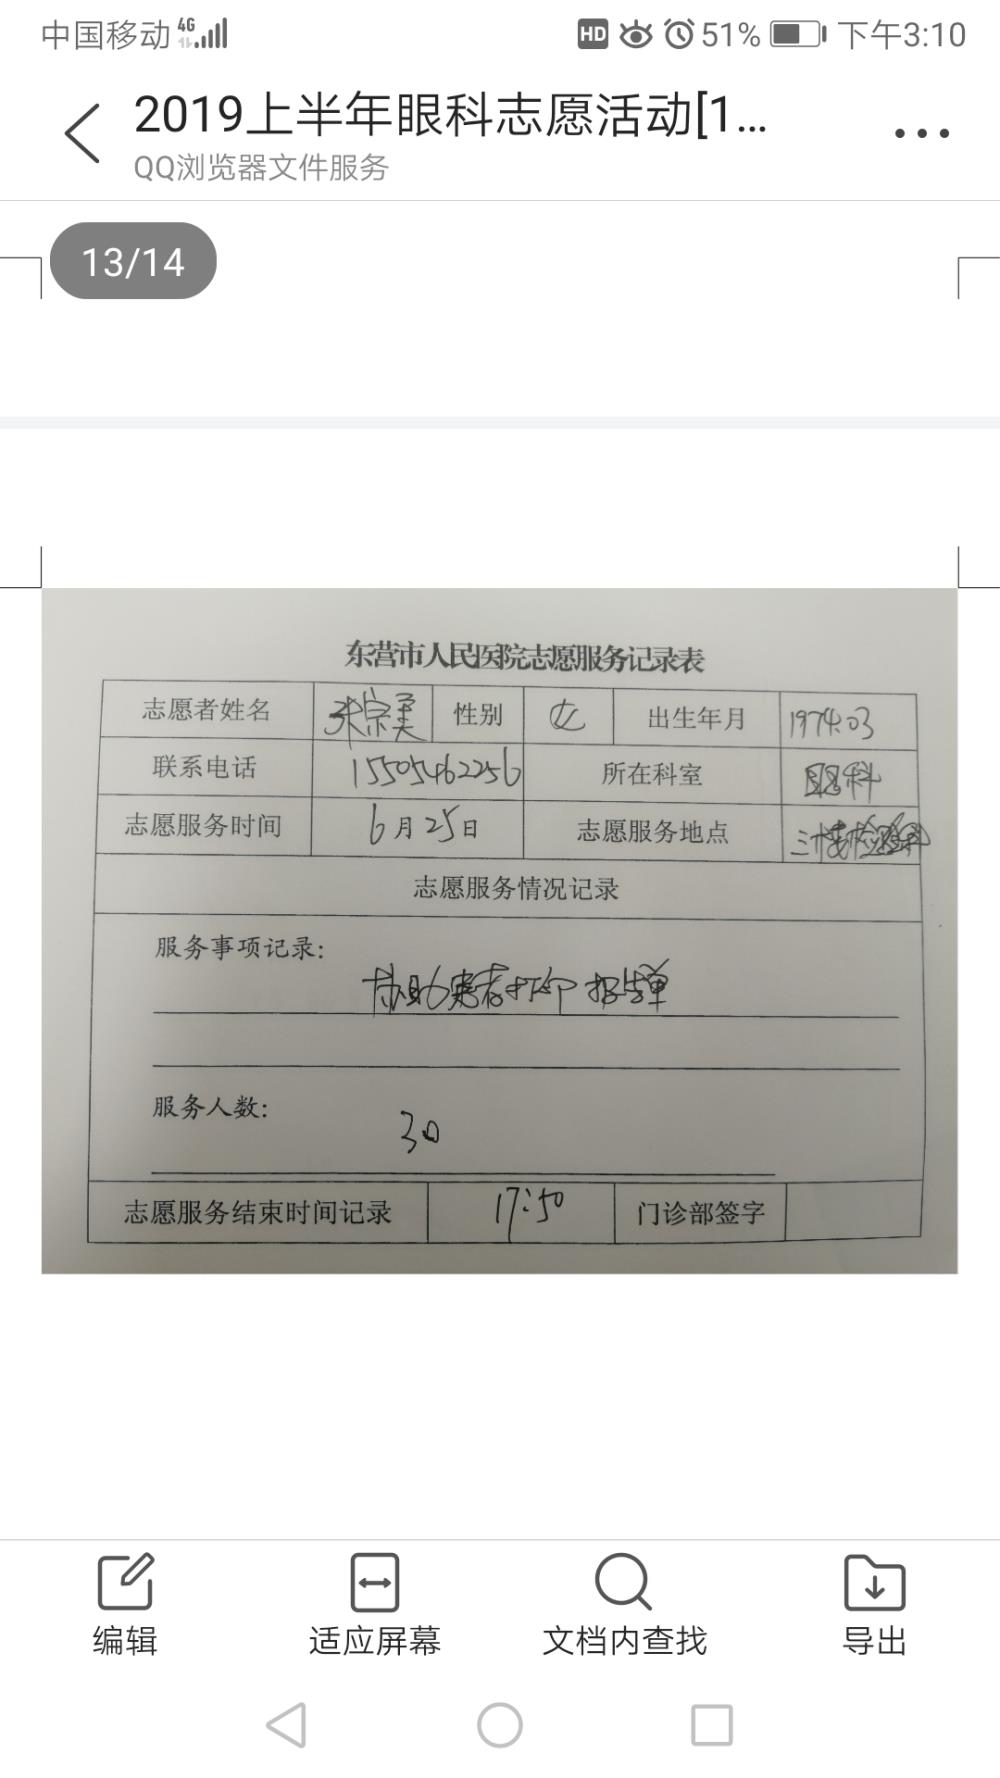 中国移动 4G HD 51% 下午3:10
2019上半年眼科志愿活动[1...
QQ浏览器文件服务
13/14
东营市人民医院志愿服务记录表
志愿者姓名 张宗美 性别 女 出生年月 1974.03
联系电话 15505462256 所在科室 眼科
志愿服务时间 6月25日 志愿服务地点 三楼检验科
志愿服务情况记录
服务事项记录:
协助患者打印报告单
服务人数:
30
志愿服务结束时间记录 17:50 门诊部签字
编辑 适应屏幕 文档内查找 导出